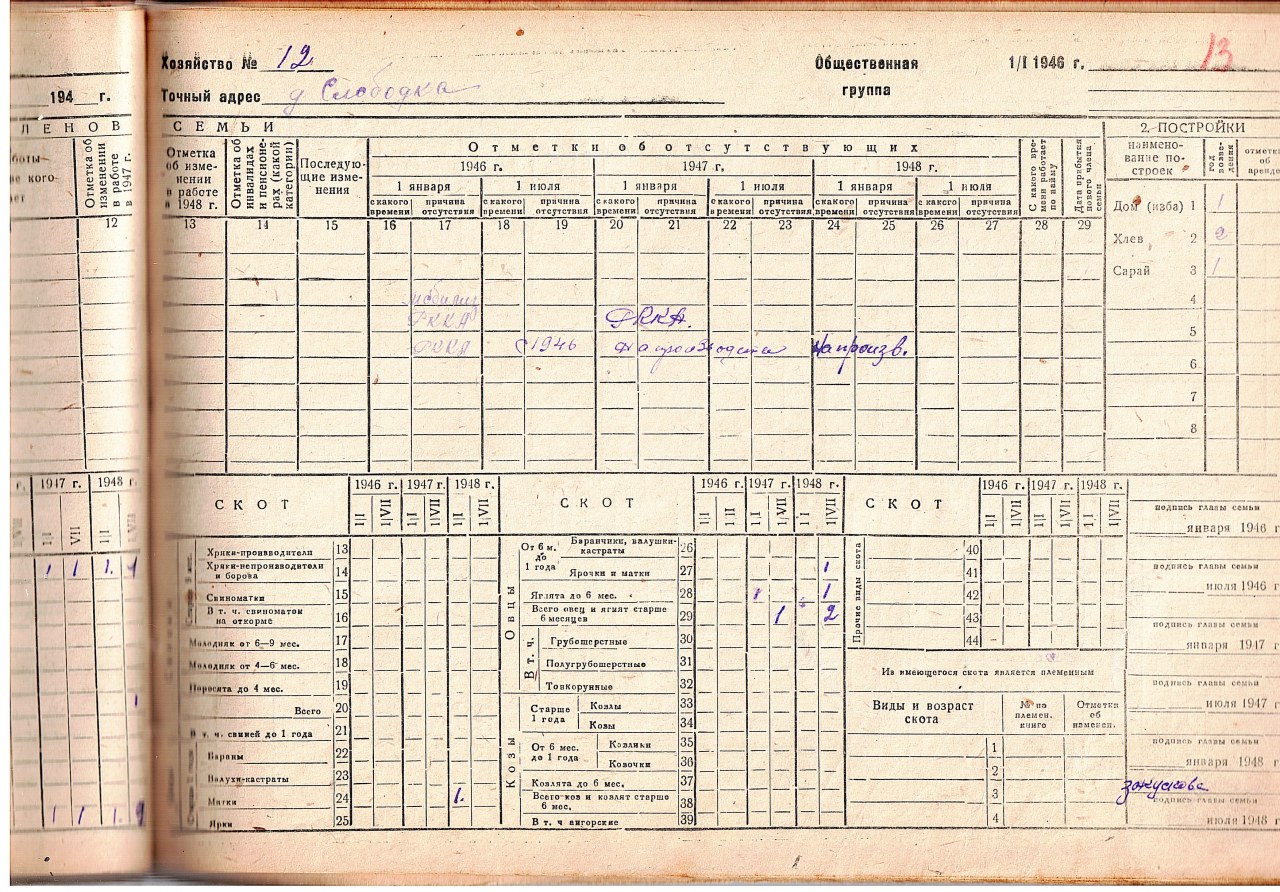 Хозяйство № 12
Общественная группа
1/I 1946 г.
13
194 г.
Точный адрес д Слободка
ЛЕНОВ
СЕМЬИ
2. ПОСТРОЙКИ
Отметка об изменении в работе в 1947 г.
Отметка об изменении в работе в 1948 г.
Отметка об инвалидах и пенсионерах (какой категории)
Последующие изменения
Отметки об отсутствующих
1946 г. 1947 г. 1948 г.
1 января 1 июля 1 января 1 июля 1 января 1 июля
с какого времени причина отсутствия с какого времени причина отсутствия с какого времени причина отсутствия с какого времени причина отсутствия с какого времени причина отсутствия с какого времени причина отсутствия
С какого времени работает по найму
Дата прибытия нового члена семьи
наименование построек
год возведения
12 13 14 15 16 17 18 19 20 21 22 23 24 25 26 27 28 29
Дом (изба) 1 1
Хлев 2 2
Сарай 3 1
4
5
6
7
8
мобилиз
РККА РККА.
РККА с 1946 На производстве На произв.
1947 г. 1948 г.
1|I VII 1|I VII
1 1 1. 1
1
1 1 1. 9
СКОТ 1946 г. 1947 г. 1948 г.
1|I 1|VII 1|I 1|VII 1|I 1|VII
Хряки-производители 13
Хряки-непроизводители и борова 14
Свиноматки 15
В т. ч. свиноматок на откорме 16
Молодняк от 6—9 мес. 17
Молодняк от 4—6 мес. 18
Поросята до 4 мес. 19
Всего 20
В т. ч. свиней до 1 года 21
Бараны 22
Валухи-кастраты 23
Матки 24 1.
Ярки 25
СКОТ 1946 г. 1947 г. 1948 г.
1|I 1|II 1|I 1|VII 1|I 1|VII
Овцы
От 6 м. до 1 года
Баранчики, валушки-кастраты 26
Ярочки и матки 27 1
Ягнята до 6 мес. 28 1 1
Всего овец и ягнят старше 6 месяцев 29 1 2
В т. ч.
Грубошерстные 30
Полугрубошерстные 31
Тонкорунные 32
Козы
Старше 1 года
Козлы 33
Козы 34
От 6 мес. до 1 года
Козлики 35
Козочки 36
Козлята до 6 мес. 37
Всего коз и козлят старше 6 мес. 38
В т. ч ангорские 39
СКОТ 1946 г. 1947 г. 1948 г.
1|I 1|VII 1|I 1|VII 1|I 1|VII
Прочие виды скота
40
41
42
43
44
Из имеющегося скота является племенным
Виды и возраст скота
№ по племен. книге
Отметки об изменен.
1
2
3
4
подпись главы семьи
января 1946 г
подпись главы семьи
июля 1946 г
подпись главы семьи
января 1947 г
подпись главы семьи
июля 1947 г
подпись главы семьи
января 1948 г
подпись главы семьи
июля 1948 г